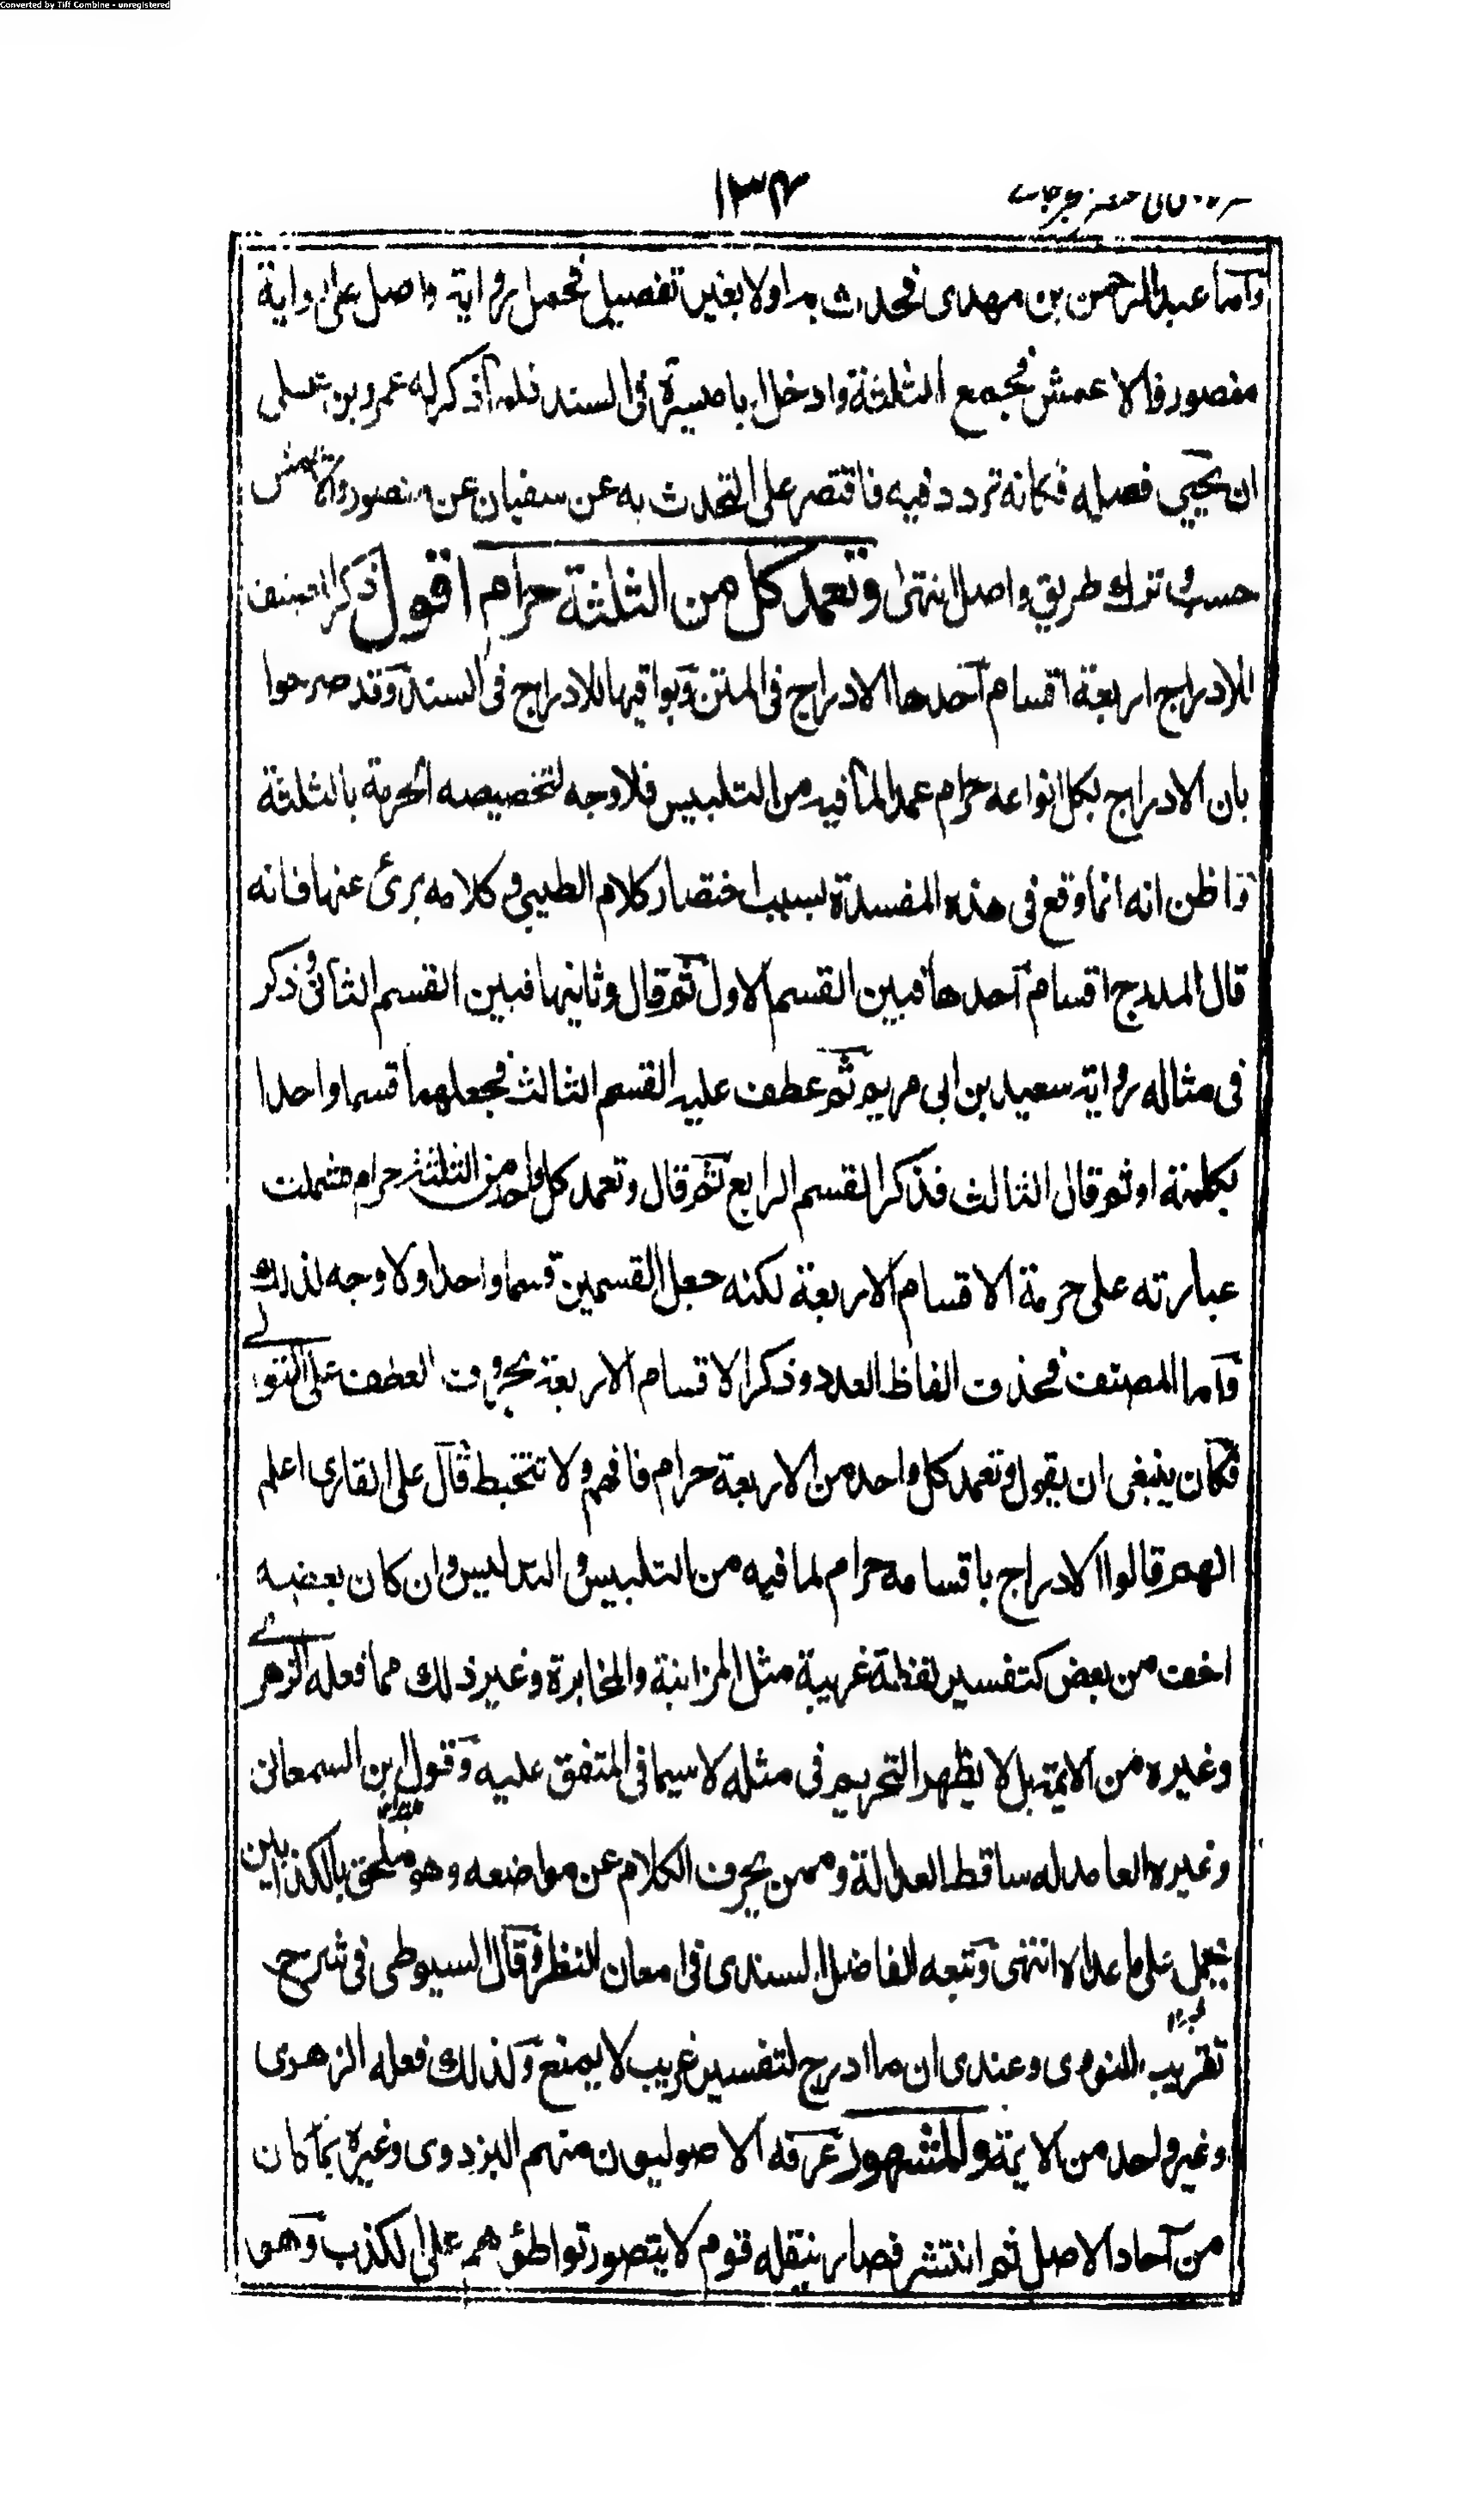 Converted by Tiff Combine - unregistered
١٣٤
وآما عبد الرحمن بن مهدى فحدث به اولا بغير تفصيل فحمل رواية واصل على رواية
منصور والاعمش فجمع الثلثة وادخل ابا ميسرة فى السند فلما ذكر له عمرو بن على
ان يحيى فصله فكانه تردد فيه فاقتصر على التحدث به عن سفيان عن منصور والاعمش
حسب وترك طريق واصل انتهى وتعمد كل من الثلثة حرام اقول ذكر المصنف
للادراج اربعة اقسام آحدها الادراج فى المتن وبواقيها للادراج فى السند وقد صرحوا
بان الادراج بكل انواعه حرام عمدا لما فيه من التلبيس فلا وجه لتخصيصه الحرمة بالثلثة
واظن انه انما وقع فى هذه المفسدة بسبب اختصار كلام الطيبى وكلامه برئ عنها فانه
قال المدرج اقسام آحدها فبين القسم الاول ثم قال وثانيها فبين القسم الثانى وذكر
فى مثاله رواية سعيد بن ابى مريم ثم عطف عليه القسم الثالث فجعلهما قسما واحدا
بكلمة او ثم قال الثالث فذكر القسم الرابع ثم قال وتعمد كل واحد من الثلثة حرام فشملت
عبارته على حرمة الاقسام الاربعة لكنه جعل القسمين قسما واحدا ولا وجه لذلك
وآما المصنف فحذف الفاظ العدد وذكر الاقسام الاربعة بحروف العطف على التوالى
فكان ينبغى ان يقول وتعمد كل واحد من الاربعة حرام فافهم ولا تتخبط قال على القارى اعلم
انهم قالوا الادراج باقسامه حرام لما فيه من التلبيس والتدليس وان كان بعضه
اخف من بعض كتفسير لفظة غريبة مثل المزابنة والمخابرة وغير ذلك مما فعله الزهرى
وغيره من الائمة بل لا يظهر التحريم فى مثله لاسيما فى المتفق عليه وقول ابن السمعانى
وغيره العامد له ساقط العدالة وممن يحرف الكلام عن مواضعه وهو ملحق بالكذابين
يحمل على ما عداه انتهى وتبعه الفاضل السندى فى امعان النظر وقال السيوطى فى شرح
تقريب النووى وعندى ان ما ادرج لتفسير غريب لا يمنع وكذلك فعله الزهرى
وغير واحد من الائمة والمشهور عرفه الاصوليون منهم البزدوى وغيره بما كان
من آحاد الاصل ثم انتشر فصار ينقله قوم لا يتصور تواطؤهم على الكذب وهو